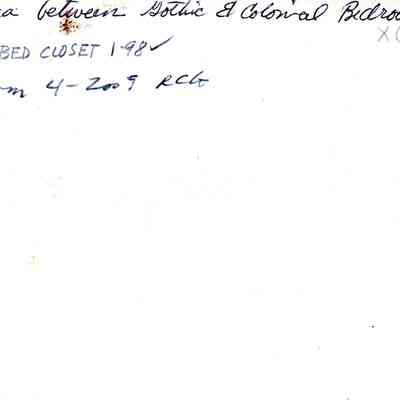 a between Gothic & Colonial Bedroo
BED CLOSET 1-98 ✓
m 4-2009 RCG
X